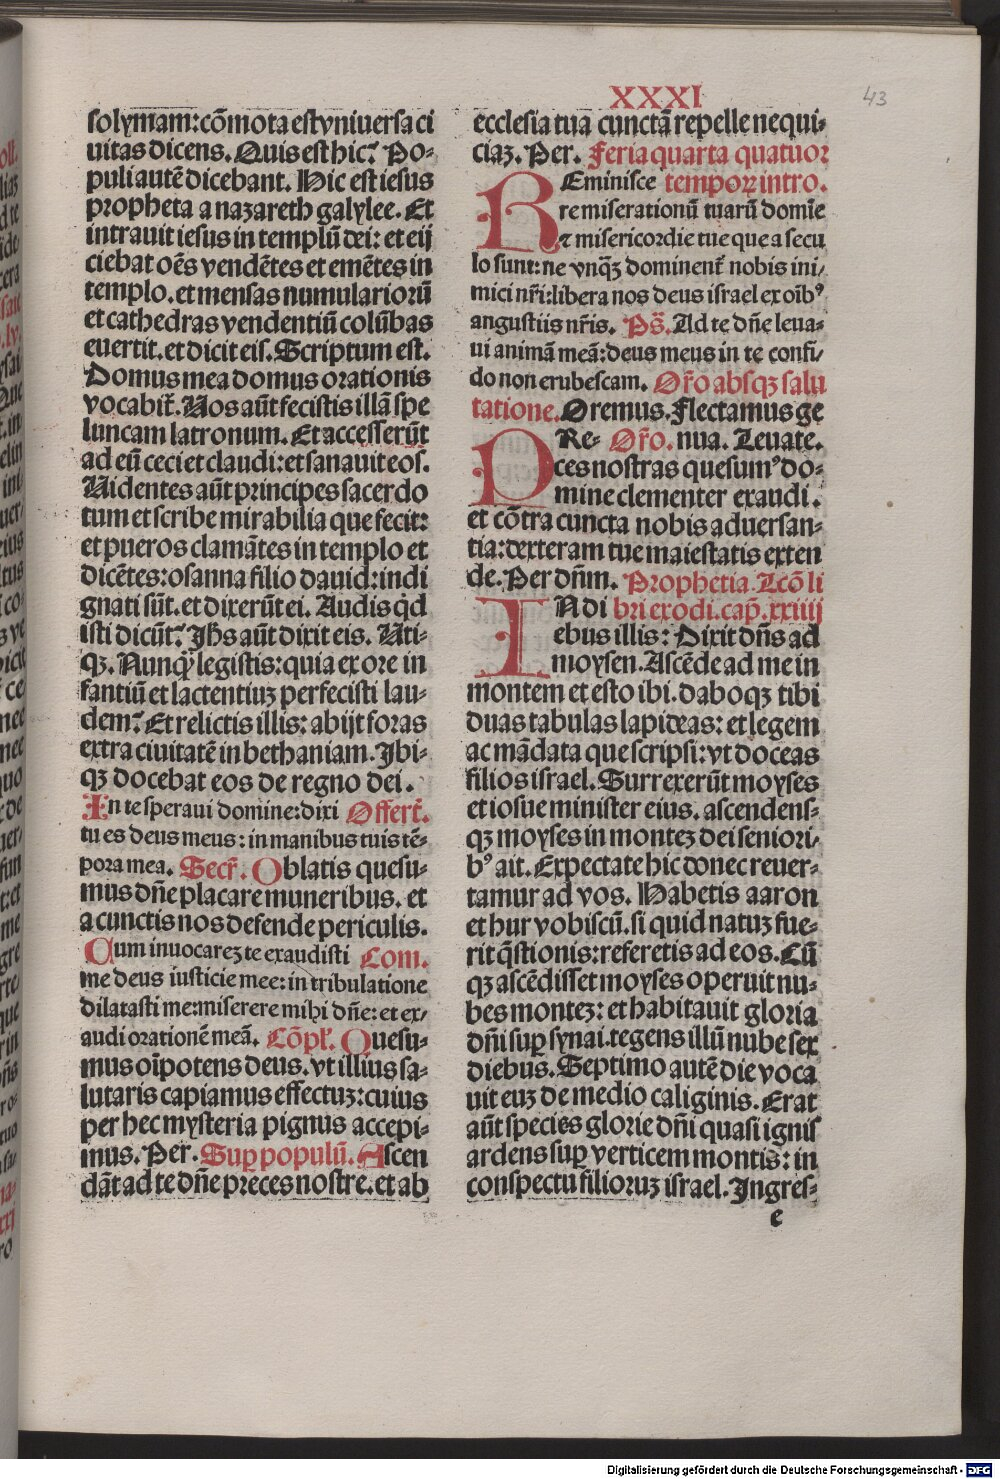 XXXI
43
solymam: cōmota est vniuersa ci
uitas dicens. Quis est hic? Po-
puli autē dicebant. Hic est iesus
propheta a nazareth galylee. Et
intrauit iesus in templū dei: et eij
ciebat oēs vendētes et emētes in
templo. et mensas numulariorū
et cathedras vendentiū colūbas
euertit. et dicit eis. Scriptum est.
Domus mea domus orationis
vocabit᷑. Uos aūt fecistis illā spe
luncam latronum. Et accesserūt
ad eū ceci et claudi: et sanauit eos.
Uidentes aūt principes sacerdo
tum et scribe mirabilia que fecit:
et pueros clamātes in templo et
dicētes: osanna filio dauid: indi
gnati sūt. et dixerūt ei. Audis qͥd
isti dicūt? Jhs aūt dixit eis. Uti-
qꝫ. Nunqͣꝫ legistis: quia ex ore in
fantiū et lactentiuꝫ perfecisti lau-
dem? Et relictis illis: abijt foras
extra ciuitatē in bethaniam. Jbi-
qꝫ docebat eos de regno dei.
In te speraui domine: dixi Offert᷑.
tu es deus meus: in manibus tuis tē-
pora mea. Secr᷑. Oblatis quesu-
mus dn̄e placare muneribus. et
a cunctis nos defende periculis.
Cum inuocareꝫ te exaudisti Com.
me deus iusticie mee: in tribulatione
dilatasti me: miserere mihi dn̄e: et ex-
audi orationē meā. Cōpl᷑. Quesu-
mus oīpotens deus. vt illius sa-
lutaris capiamus effectuꝫ: cuius
per hec mysteria pignus accepi-
mus. Per. Suꝑ populū. Ascen
dāt ad te dn̄e preces nostre. et ab
ecclesia tua cunctā repelle nequi-
ciaꝫ. Per. Feria quarta quatuor
Reminisce temporꝫ intro.
re miserationū tuarū domīe
⁊ misericordie tue que a secu
lo sunt: ne vnqꝫ dominent᷑ nobis ini-
mici nr̄i: libera nos deus israel ex oībꝰ
angustiis nr̄is. Ps̄. Ad te dn̄e leua-
ui animā meā: deus meus in te confi-
do non erubescam. Or̄o absqꝫ salu
tatione. Oremus. Flectamus ge
PRe- Or̄o. nua. Leuate.
ces nostras quesumꝰ do-
mine clementer exaudi.
et cōtra cuncta nobis aduersan-
tia: dexteram tue maiestatis exten
de. Per dn̄m. Prophetia. Lcō li
IN di bri exodi. cap̄. xxiiij
ebus illis: Dixit dn̄s ad
moysen. Ascēde ad me in
montem et esto ibi. daboqꝫ tibi
duas tabulas lapideas: et legem
ac mādata que scripsi: vt doceas
filios israel. Surrexerūt moyses
et iosue minister eius. ascendens-
qꝫ moyses in monteꝫ dei seniori-
bꝰ ait. Expectate hic donec reuer-
tamur ad vos. Habetis aaron
et hur vobiscū. si quid natuꝫ fue-
rit q̄stionis: referetis ad eos. Cū
qꝫ ascēdisset moyses operuit nu-
bes monteꝫ: et habitauit gloria
dn̄i suꝑ synai. tegens illū nube sex
diebus. Septimo autē die voca
uit euꝫ de medio caliginis. Erat
aūt species glorie dn̄i quasi ignis
ardens suꝑ verticem montis: in
conspectu filioruꝫ israel. Jngres-
e
Digitalisierung gefördert durch die Deutsche Forschungsgemeinschaft - DFG